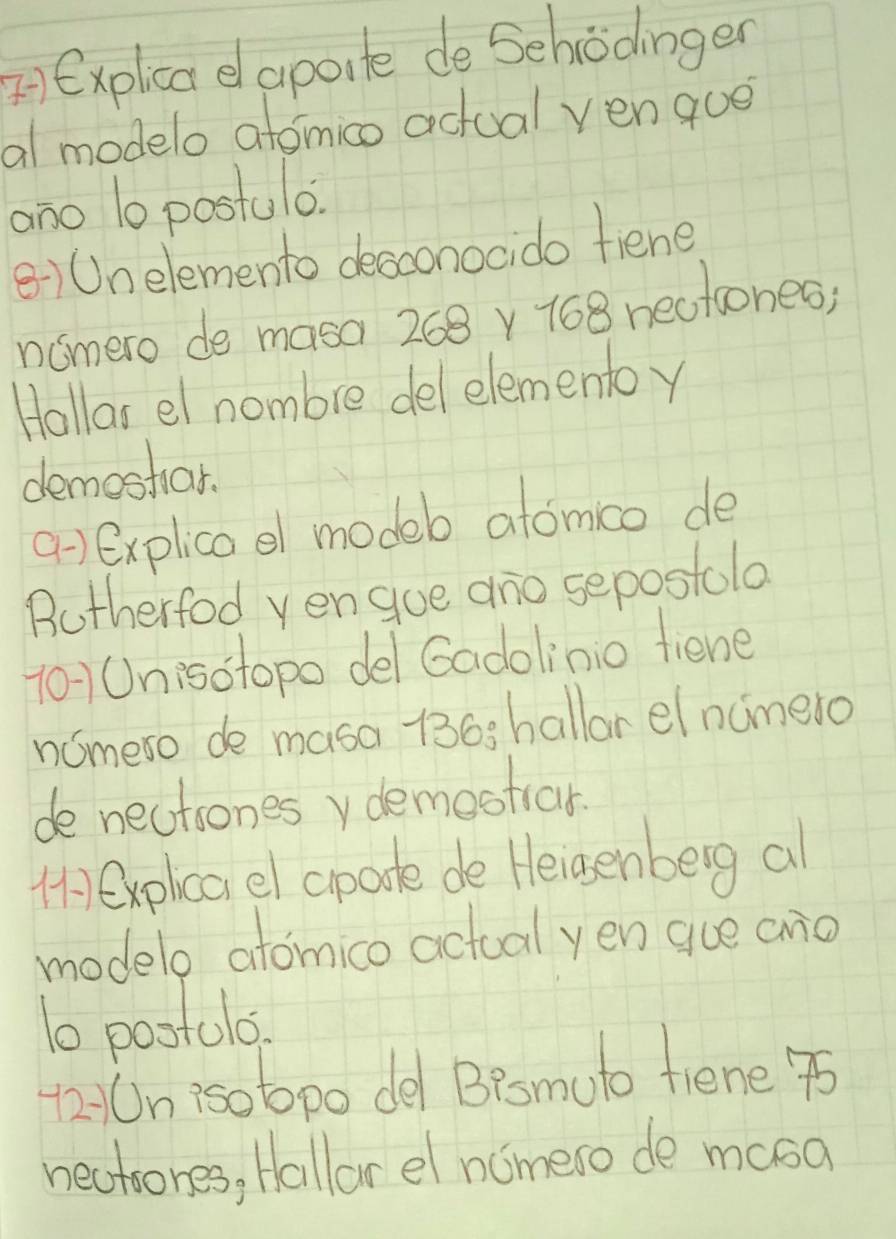 7-) Explica el aporte de Schrödinger
al modelo atómico actual y en qué
año lo postuló.
8-) Un elemento desconocido tiene
número de masa 268 y 168 neutrones;
Hallar el nombre del elemento y
demostrar.
9-) Explica el modelo atómico de
Rutherfod y en que año se postula
10-) Un isótopo del Gadolinio tiene
número de masa 136; hallar el número
de neutrones y demostrar.
11-) Explica el aporte de Heisenberg al
modelo atómico actual y en que año
lo postuló.
12-) Un isotopo del Bismuto tiene 75
neutrones; Hallar el número de masa